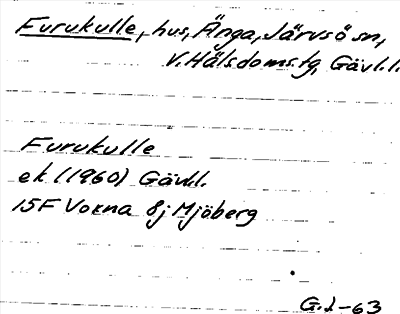 Furukulle, hus, Änga, Järvsö sn,
V. Hälsdoms.tg, Gävl.l.
Furukulle
ek (1960) Gävl.l.
15F Voxna 8j Mjöberg
G.I-63